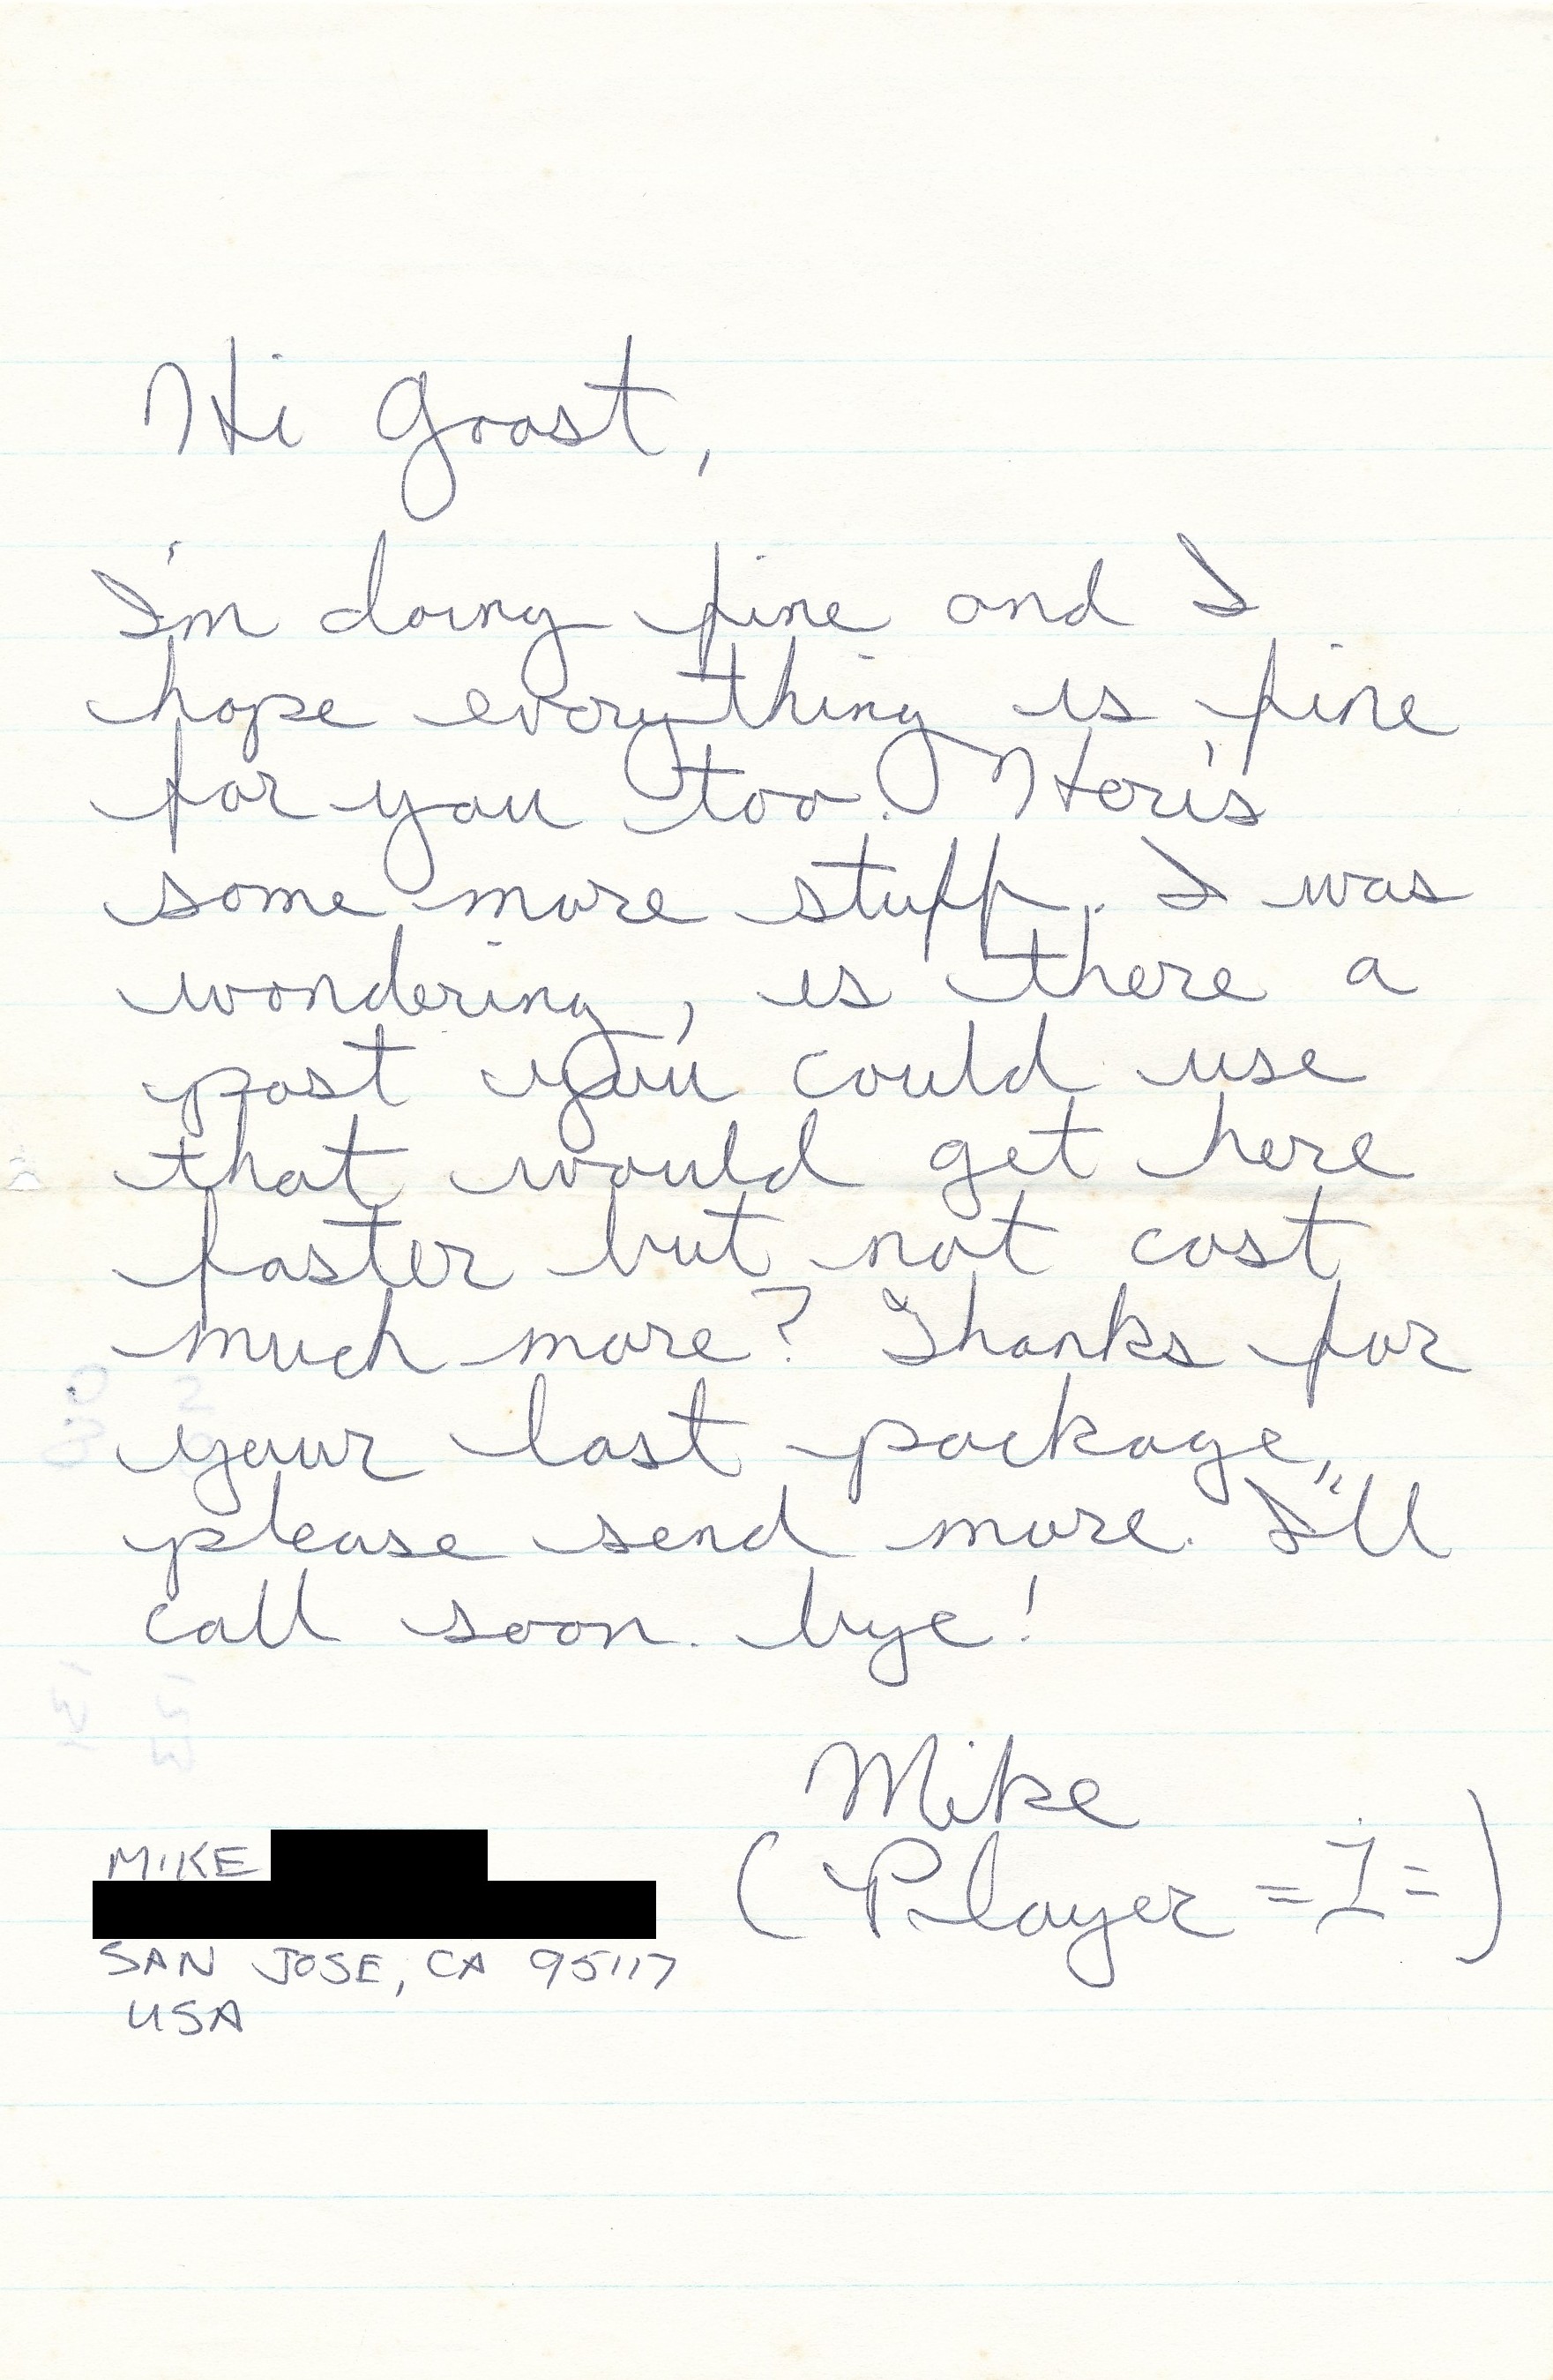 Hi Goost,
I'm doing fine and I
hope everything is fine
for you too. Her's
some more stuff. I was
wondering, is there a
post you could use
that would get here
faster but not cost
much more? Thanks for
your last package,
please send more. I'll
call soon. bye!
Mike
(Player =1=)
MIKE
SAN JOSE, CA 95117
USA